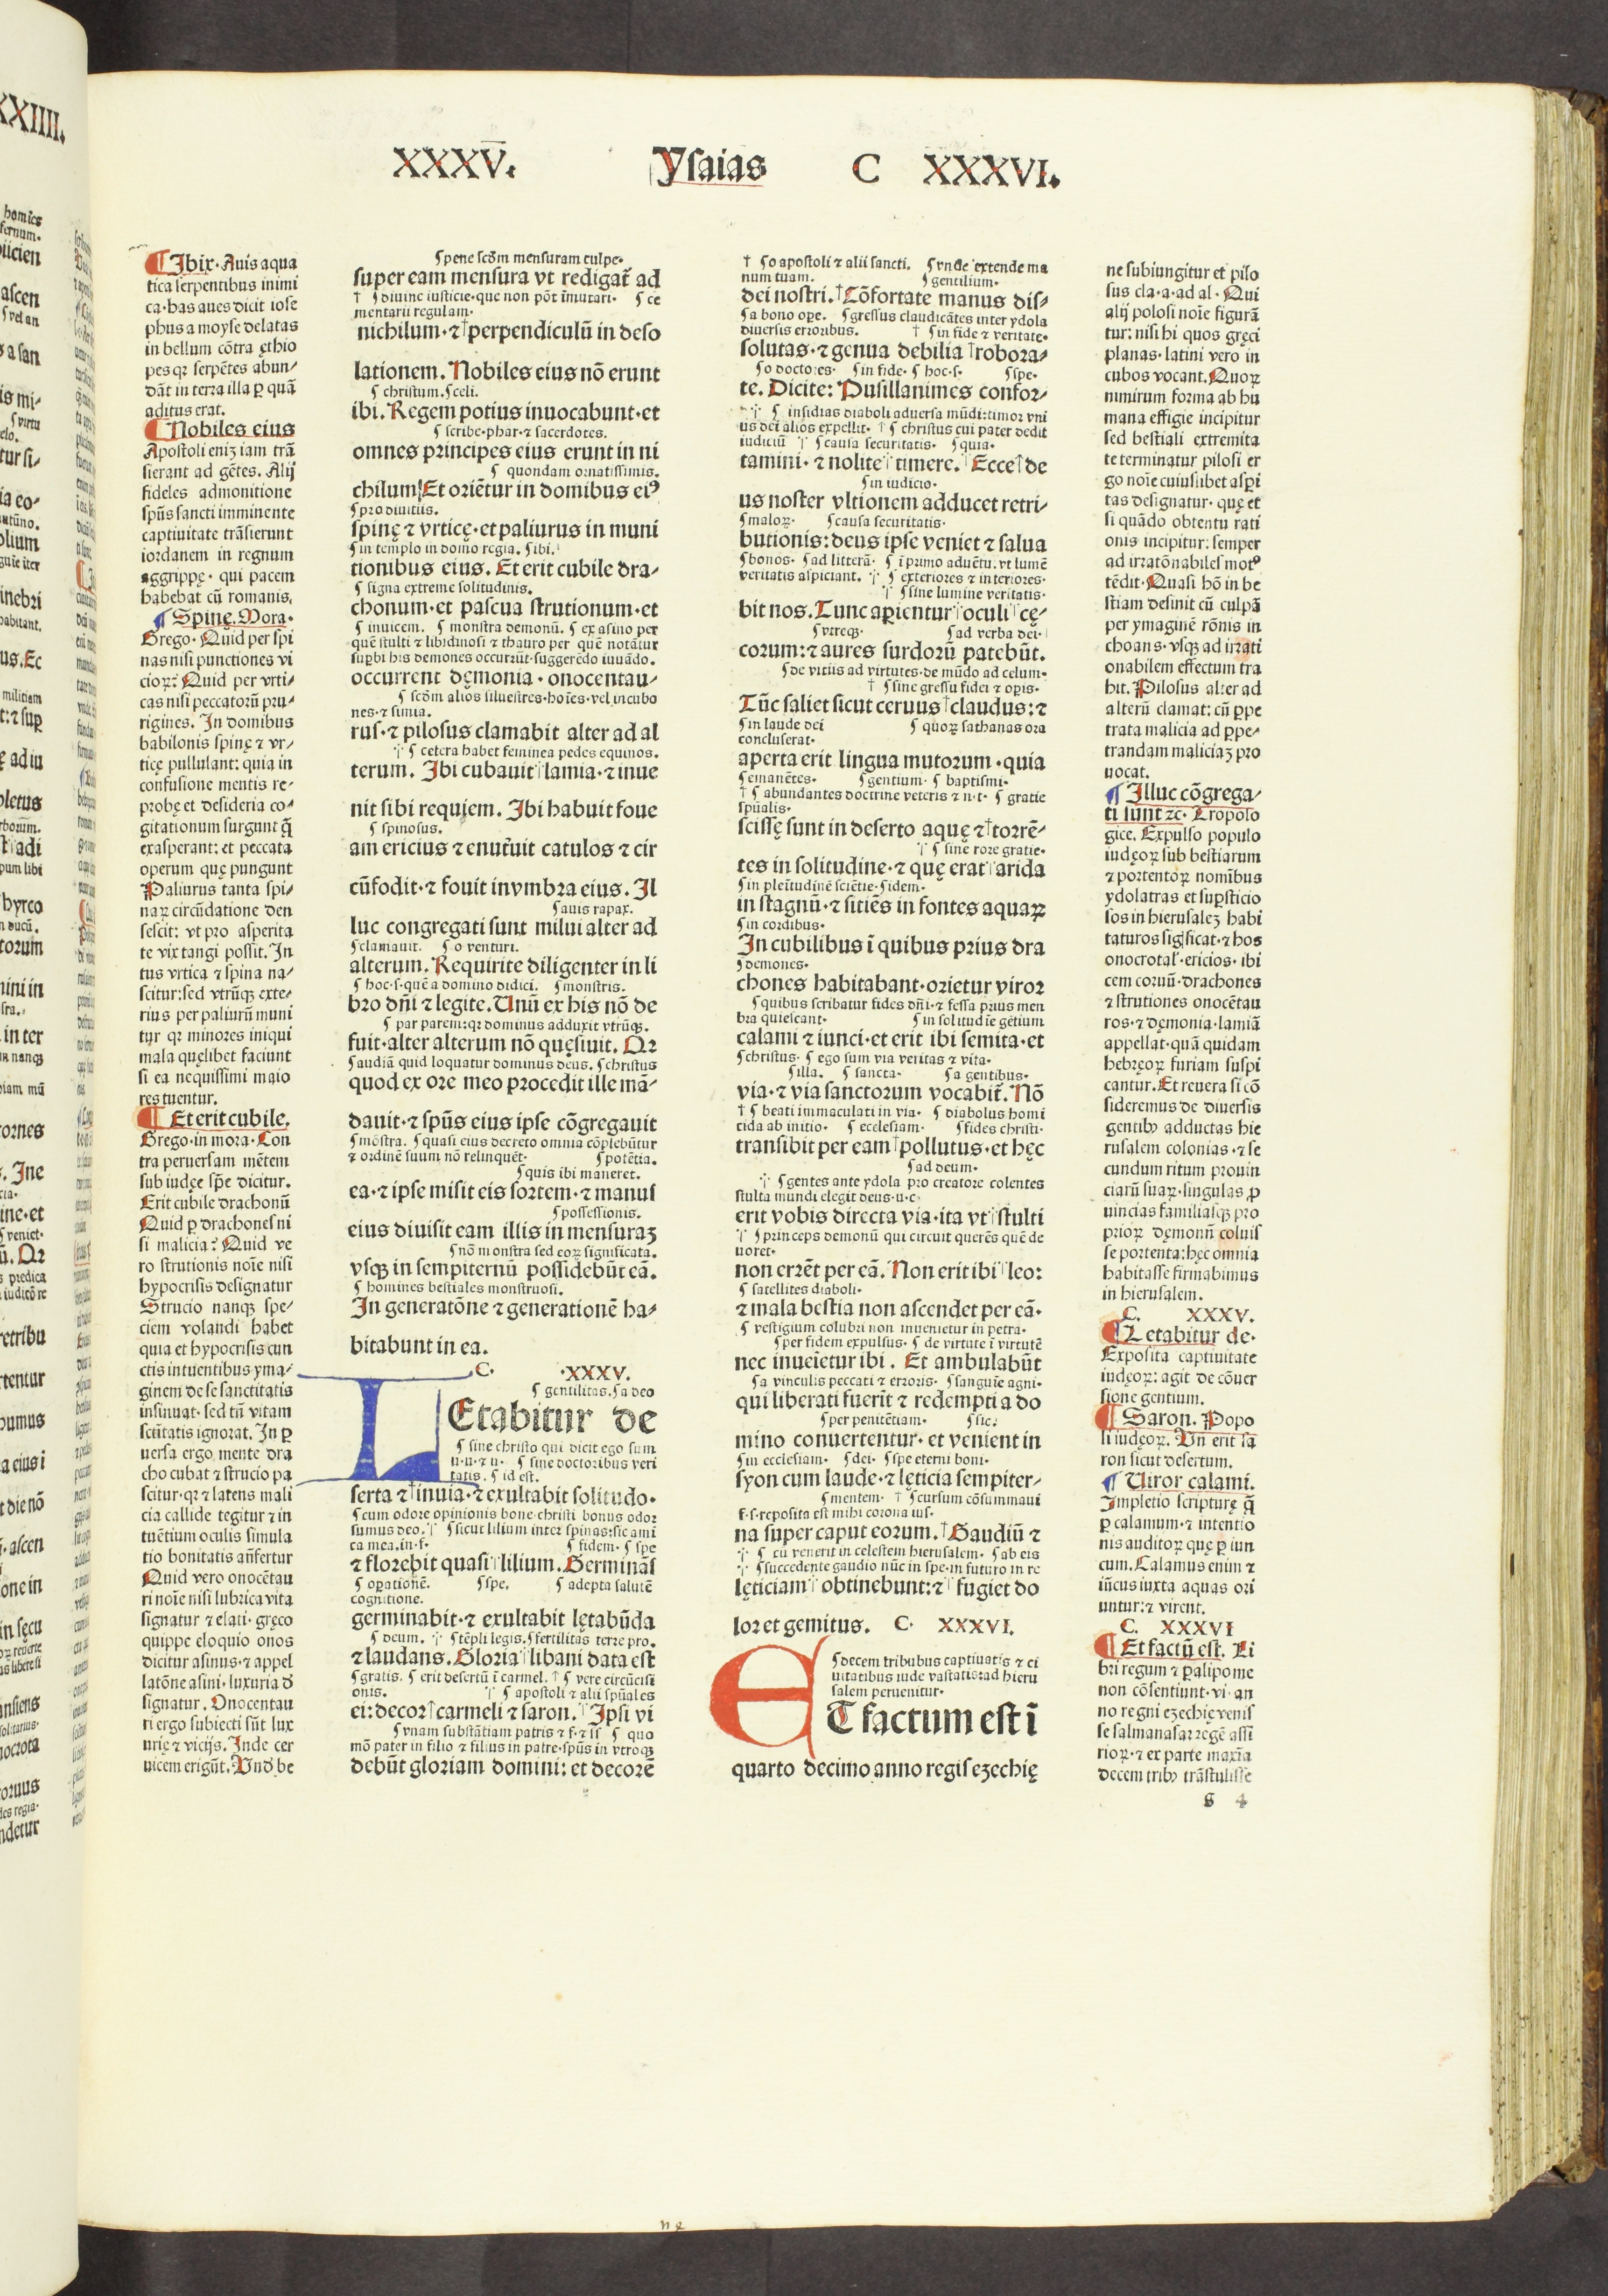 XXXV.
Ysaias
C XXXVI.
¶ Ibix. Auis aqua
tica serpentibus inimi
ca. has aues dicit iose
phus a moyse delatas
in bellum cõtra ęthio
pes qꝛ serpẽtes abun/
dãt in terra illa ꝑ quã
aditus erat.
¶ Nobiles eius
Apostoli eniʒ iam trã
sierant ad gẽtes. Alij
fideles admonitione
spũs sancti imminente
captiuitate trãsierunt
iordanem in regnum
aggrippę. qui pacem
habebat cũ romanis.
¶ Spinę. Mora.
Grego. Quid per spi
nas nisi punctiones vi
cioꝝ? Quid per vrti/
cas nisi peccatorũ pru/
rigines. In domibus
babilonis spinę ⁊ vr/
ticę pullulant: quia in
confusione mentis re/
probę et desideria co/
gitationum surgunt q̃
exasperant: et peccata
operum quę pungunt
Paliurus tanta spi/
naꝝ circũdatione den
sescit: vt pro asperita
te vix tangi possit. In
tus vrtica ⁊ spina na/
scitur: sed vtrũqꝫ exte/
rius per paliurũ muni
tur qꝛ minores iniqui
mala quęlibet faciunt
si ea nequissimi maio
res tuentur.
¶ Et erit cubile.
Grego. in mora. Con
tra peruersam mẽtem
sub iudęe sp̃e dicitur.
Erit cubile drachonũ
Quid ꝑ drachones ni
si malicia? Quid ve
ro strutionis noĩe nisi
hypocrisis designatur
Strucio nanqꝫ spe/
ciem volandi habet
quia et hypocrisis cun
ctis intuentibus yma/
ginem de se sanctitatis
insinuat. sed tñ vitam
sctitatis ignorat. In ꝑ
uersa ergo mente dra
cho cubat ⁊ strucio pa
scitur. qꝛ ⁊ latens mali
cia callide tegitur ⁊ in
tuẽtium oculis simula
tio bonitatis añfertur
Quid vero onocẽtau
ri noĩe nisi lubrica vita
signatur ⁊ elati. gręco
quippe eloquio onos
dicitur asinus. ⁊ appel
latõne asini. luxuria ð
signatur. Onocentau
ri ergo subiecti sũt lux
urię ⁊ vicijs. Inde cer
uicem erigũt. Vnð be
¶ pene scðm mensuram culpe.
super eam mensura vt redigat̃ ad
† ¶ diuine iusticie. que non põt ĩmutari. ¶ ce
mentarii regulam.
nichilum. ⁊ † perpendiculũ in deso
lationem. Nobiles eius nõ erunt
¶ christum. ¶ celi.
ibi. Regem potius inuocabunt. et
¶ scribe. phar. ⁊ sacerdotes.
omnes principes eius erunt in ni
¶ quondam ornatissimis.
chilum. Et oriẽtur in domibus eiꝰ
¶ pro diuitiis.
spinę ⁊ vrticę. et paliurus in muni
¶ in templo in domo regia. ¶ ibi.
tionibus eius. Et erit cubile dra/
¶ signa extreme solitudinis.
chonum. et pascua strutionum. et
¶ inuicem. ¶ monstra demonũ. ¶ ex asino per
quẽ stulti ⁊ libidinosi ⁊ thauro per quẽ notãtur
suꝑbi his demones occurrũt. suggerẽdo iuuãdo.
occurrent dęmonia. onocentau/
¶ scðm alios siluestres. hoĩes. vel incubo
nes. ⁊ simia.
rus. ⁊ pilosus clamabit alter ad al
¶ cetera habet feminea pedes equinos.
terum. Ibi cubauit lamia. ⁊ inue
nit sibi requiem. Ibi habuit foue
¶ spinosus.
am ericius ⁊ enut̃uit catulos ⁊ cir
cũfodit. ⁊ fouit in vmbra eius. Il
¶ auis rapax.
luc congregati sunt milui alter ad
¶ clamauit. ¶ o venturi.
alterum. Requirite diligenter in li
¶ hoc. s. quẽ a domino didici. ¶ monstris.
bro dñi ⁊ legite. Unũ ex his nõ de
¶ par parem: qꝛ dominus adduxit vtrũqꝫ.
fuit. alter alterum nõ quęsiuit. Qꝛ
¶ audiã quid loquatur dominus deus. ¶ christus
quod ex ore meo procedit ille mã/
dauit. ⁊ spũs eius ipse cõgregauit
¶ mõstra. ¶ quasi eius decreto omnia cõplebũtur
⁊ ordinẽ suum nõ relinquẽt. ¶ potẽtia.
¶ quis ibi maneret.
ea. ⁊ ipse misit eis sortem. ⁊ manus
¶ possessionis.
eius diuisit eam illis in mensuraʒ
¶ nõ monstra sed eoꝝ significata.
vsqꝫ in sempiternũ possidebũt eã.
¶ homines bestiales monstruosi.
In generatõne ⁊ generationẽ ha/
bitabunt in ea.
C. XXXV.
¶ gentilitas. ¶ a deo
LEtabitur de
¶ sine christo qui dicit ego sum
u. u. ⁊ u. ¶ sine doctoribus veri
tatis. ¶ id est.
serta ⁊ † inuia. ⁊ exultabit solitudo.
¶ cum odore opinionis bone. christi bonus odor
sumus deo. ¶ sicut lilium inter spinas: sic ami
ca mea. in. f. ¶ fidem. ¶ spe
⁊ florebit quasi lilium. Germinãs
¶ oꝑationẽ. ¶ spe. ¶ adepta salutẽ
cognitione.
germinabit. ⁊ exultabit lętabũda
¶ deum. ¶ tẽpli legis. ¶ fertilitas terre pro.
⁊ laudans. Gloria libani data est
¶ gratis. ¶ erit desertũ ĩ carmel. † ¶ vere circũcisi
onis. ¶ apostoli ⁊ alii spũales
ei: decor † carmeli ⁊ saron. Ipsi vi
¶ vnam substãtiam patris ⁊ f. ⁊ ss ¶ quo
mõ pater in filio ⁊ filius in patre. spũs in vtroqꝫ
debũt gloriam domini: et decorẽ
† ¶ o apostoli ⁊ alii sancti. ¶ vnde extende ma
num tuam. ¶ gentilium.
dei nostri. † Cõfortate manus dis/
¶ a bono oꝑe. ¶ gressus claudicãtes inter ydola
diuersis erroribus. † ¶ in fide ⁊ veritate.
solutas. ⁊ genua debilia † robora/
¶ o doctores. ¶ in fide. ¶ hoc. s. ¶ spe.
te. Dicite: Pusillanimes confor/
¶ insidias diaboli aduersa mũdi: timor vni
us dei alios expellit. † ¶ christus cui pater dedit
iudiciũ ¶ causa securitatis. ¶ quia.
tamini. ⁊ nolite timere. Ecce de
¶ in iudicio.
us noster vltionem adducet retri/
¶ maloꝝ. ¶ causa securitatis.
butionis: deus ipse veniet ⁊ salua
¶ bonos. ¶ ad litterã. ¶ ĩ primo aduẽtu. vt lumẽ
veritatis aspiciant. ¶ exteriores ⁊ interiores.
¶ sine lumine veritatis.
bit nos. Tunc aꝑientur oculi cę/
¶ vtreqꝫ. ¶ ad verba dei.
corum: ⁊ aures surdorũ patebũt.
¶ de vitiis ad virtutes. de mũdo ad celum.
† ¶ sine gressu fidei ⁊ oꝑis.
Tũc saliet sicut ceruus † claudus: ⁊
¶ in laude dei ¶ quoꝝ sathanas ora
concluserat.
aperta erit lingua mutorum. quia
¶ emanẽtes. ¶ gentium. ¶ baptismi.
† ¶ abundantes doctrine veteris ⁊ n. t. ¶ gratie
spũalis.
scissę sunt in deserto aquę ⁊ † torrẽ/
¶ sine rore gratie.
tes in solitudine. ⁊ quę erat arida
¶ in plenĩtudinẽ sciẽtie. ¶ idem.
in stagnũ. ⁊ sitiẽs in fontes aquaꝝ
¶ in cordibus.
In cubilibus ĩ quibus prius dra
¶ demones.
chones habitabant. orietur viror
¶ quibus scribatur fides dñi. ⁊ fessa prius men
bra quiescant. ¶ in solitudĩe gẽtium
calami ⁊ iunci. et erit ibi semita. et
¶ christus. ¶ ego sum via veritas ⁊ vita.
¶ illa. ¶ sancta. ¶ a gentibus.
via. ⁊ via sanctorum vocabit̃. Nõ
† ¶ beati immaculati in via. ¶ diabolus homi
cida ab initio. ¶ ecclesiam. ¶ fides christi.
transibit per eam † pollutus. et hęc
¶ ad deum.
¶ gentes ante ydola pro creatore colentes
stulta mundi elegit deus. u. c.
erit vobis directa via. ita vt stulti
¶ princeps demonũ qui circuit querẽs quẽ de
uoret.
non errẽt per eã. Non erit ibi leo:
¶ satellites diaboli.
⁊ mala bestia non ascendet per eã.
¶ vestigium colubri non inuenietur in petra.
¶ per fidem expulsus. ¶ de virtute ĩ virtutẽ
nec inueĩetur ibi. Et ambulabũt
¶ a vinculis peccati ⁊ erroris. ¶ sanguĩe agni.
qui liberati fuerĩt ⁊ redempti a do
¶ per penitẽtiam. ¶ sic:
mino conuertentur. et venient in
¶ in ecclesiam. ¶ dei. ¶ spe eterni boni.
syon cum laude. ⁊ lęticia sempiter/
¶ mentem. † ¶ cursum cõsummaui
f. s. reposita est mihi corona ius.
na super caput eorum. † Gaudiũ ⁊
¶ cũ venerit in celestem hierusalem. ¶ ab eis
¶ succedente gaudio nũc in spe. in futuro in re
lęticiam obtinebunt: ⁊ fugiet do
lor et gemitus. C. XXXVI.
¶ decem tribubus captiuatis ⁊ ci
uitatibus iude vastatis: ad hieru
salem peruenitur.
ET factum est ĩ
quarto decimo anno regis eʒechię
ne subiungitur et pilo
sus cla. a. ad al. Qui
alij pilosi noĩe figurã
tur: nisi hi quos gręci
planas. latini vero in
cubos vocant. Quoꝝ
nimirum forma ab hu
mana effigie incipitur
sed bestiali extremita
te terminatur pilosi er
go noĩe cuiuslibet asꝑi
tas designatur. quę et
si quãdo obtentu rati
onis incipitur: semper
ad irratõnabiles motꝰ
tẽdit. Quasi hõ in be
stiam desinit cũ culpã
per ymaginẽ rõnis in
choans. vsqꝫ ad irrati
onabilem effectum tra
hit. Pilosus alter ad
alterũ clamat: cũ ꝑpe
trata malicia ad ꝑpe/
trandam maliciaʒ pro
uocat.
¶ Illuc cõgrega/
ti sunt ⁊c. Tropolo
gice. Expulso populo
iudęoꝝ sub bestiarum
⁊ portentoꝝ nomĩbus
ydolatras et suꝑsticio
sos in hierusaleʒ habi
taturos significat. ⁊ hos
onocrotal'. ericios. ibi
cem coruũ. drachones
⁊ strutiones onocẽtau
ros. ⁊ dęmonia. lamiã
appellat. quã quidam
hebręoꝝ furiam suspi
cantur. Et reuera si cõ
sideremus de diuersis
gentibꝫ adductas hie
rusalem colonias. ⁊ se
cundum ritum prouin
ciarũ suaꝝ. singulas ꝓ
uincias familiasqꝫ pro
prioꝝ dęmonũ coluis
se portenta: hęc omnia
habitasse firmabimus
in hierusalem.
C. XXXV.
¶ Letabitur de.
Exposita captiuitate
iudęoꝝ: agit de cõuer
sione gentium.
¶ Saron. Popo
li iudęoꝝ. Vn erit sa
ron sicut desertum.
¶ Uiror calami.
Impletio scripturę q̃
ꝑ calamum. ⁊ intentio
nis auditoꝝ quę ꝑ iun
cum. Calamus enim ⁊
iũcus iuxta aquas ori
untur: ⁊ virent.
C. XXXVI
¶ Et factũ est. Li
bri regum ⁊ ꝑalipome
non cõsentiunt. vi. an
no regni eʒechię venis
se salmanasar regẽ assi
rioꝝ. ⁊ ex parte maxĩa
decem tribꝫ trãstulisse
s 4